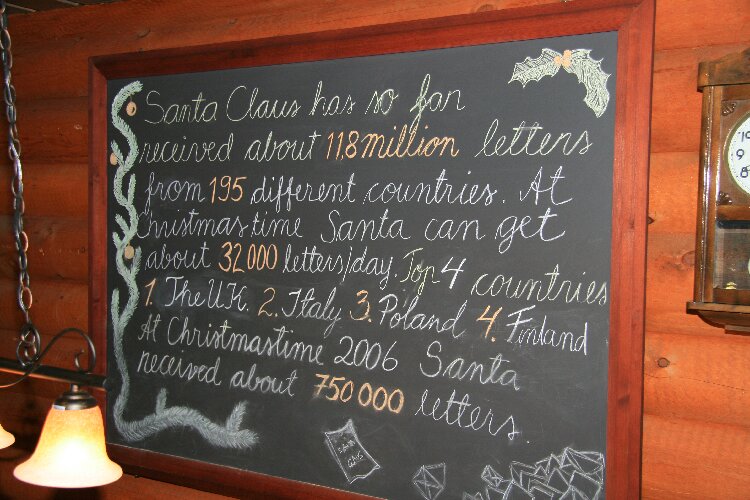 Santa Claus has so far
received about 11,8 million letters
from 195 different countries. At
Christmastime Santa can get
about 32000 letters/day. Top 4 countries
1. The U.K. 2. Italy 3. Poland 4. Finland
At Christmastime 2006 Santa
received about 750000 letters.
SANTA
CLAUS
10
9
8